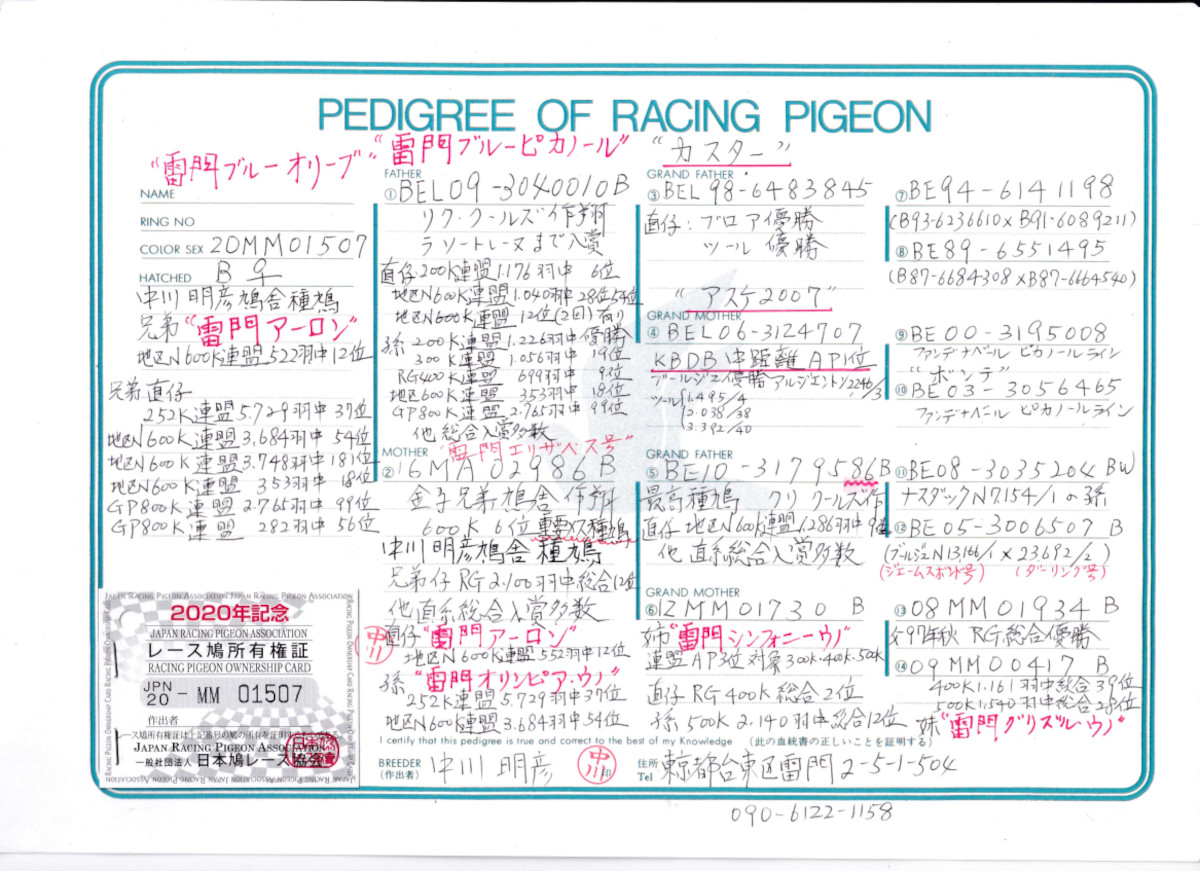 PEDIGREE OF RACING PIGEON
"雷門ブルーオリーブ"
NAME
RING NO
COLOR SEX 20MM01507
HATCHED B ♀
中川明彦鳩舎種鳩
兄弟"雷門アーロン"
地区N600K連盟522羽中12位
兄弟直仔
252K連盟5.729羽中37位
地区N600K連盟3.684羽中54位
地区N600K連盟3.748羽中181位
地区N600K連盟353羽中18位
GP800K連盟2.765羽中99位
GP800K連盟282羽中56位
"雷門ブルーピカノール"
FATHER
①BEL09-3040010B
リク・クールズ作翔
ラソートレーヌまで入賞
直仔200K連盟1.176羽中6位
地区N600K連盟1.040羽中28位54位
地区N600K連盟12位(2回)有り
孫200K連盟1.226羽中優勝
300K連盟1.056羽中19位
RG400K連盟699羽中9位
地区600K連盟353羽中18位
GP800K連盟2.765羽中99位
他総合入賞多数
MOTHER "雷門エリザベス号"
②16MA02986B
金子兄弟鳩舎作翔
600K6位重要♀種鳩
中川明彦鳩舎種鳩
兄弟仔RG2.100羽中総合12位
他直系総合入賞多数
直仔"雷門アーロン"
地区N600K連盟552羽中12位
孫"雷門オリンピア・ウノ"
252K連盟5.729羽中37位
地区N600K連盟3.684羽中54位
"カスター"
GRAND FATHER
③BEL98-6483845
直仔:ブロア優勝
ツール優勝
"アスケ2007"
GRAND MOTHER
④BEL06-3124707
KBDB中距離AP1位
ブールジェ優勝アルジェントン2246/3
ツール1.495/4
2.038/38
3.392/40
GRAND FATHER
⑤BE10-3179586B
最高種鳩 クリクールズ作
直仔地区N600K連盟1.286羽中9位
他直系総合入賞多数
GRAND MOTHER
⑥12MM01730 B
姉"雷門シンフォニーウノ"
連盟AP3位対象300K・400K・500K
直仔RG400K総合2位
孫500K2.140羽中総合12位
⑦BE94-6141198
(B93-6236610×B91-6089211)
⑧BE89-6551495
(B87-6684308×B87-6664540)
⑨BE00-3195008
ファンデナベール ピカノールライン
"ボンテ"
⑩BE03-3056465
ファンデナベール ピカノールライン
⑪BE08-3035204 BW
ナスダックN7154/1の孫
⑫BE05-3006507 B
(ブールジェN13,166/1×23,692/2)
(ジェームスボンド号) (ダーリング号)
⑬08MM01934 B
父97年秋RG総合優勝
⑭09MM00417 B
400K1.161羽中総合39位
500K1.540羽中総合28位
妹"雷門グリズル・ウノ"
I certify that this pedigree is true and correct to the best of my Knowledge (此の血統書の正しいことを証明する)
BREEDER
(作出者) 中川明彦 中川印
住所
Tel 東京都台東区雷門2-5-1-504
090-6122-1158
中川
JAPAN RACING PIGEON ASSOCIATION JAPAN RACING PIGEON ASSOCIATION
RACING PIGEON OWNERSHIP CARD
2020年記念
JAPAN RACING PIGEON ASSOCIATION
レース鳩所有権証
RACING PIGEON OWNERSHIP CARD
JPN
20 - MM 01507
作出者
レース鳩所有権証は上記番号の鳩の所有を証明
JAPAN RACING PIGEON ASSOCIATION
一般社団法人 日本鳩レース協会